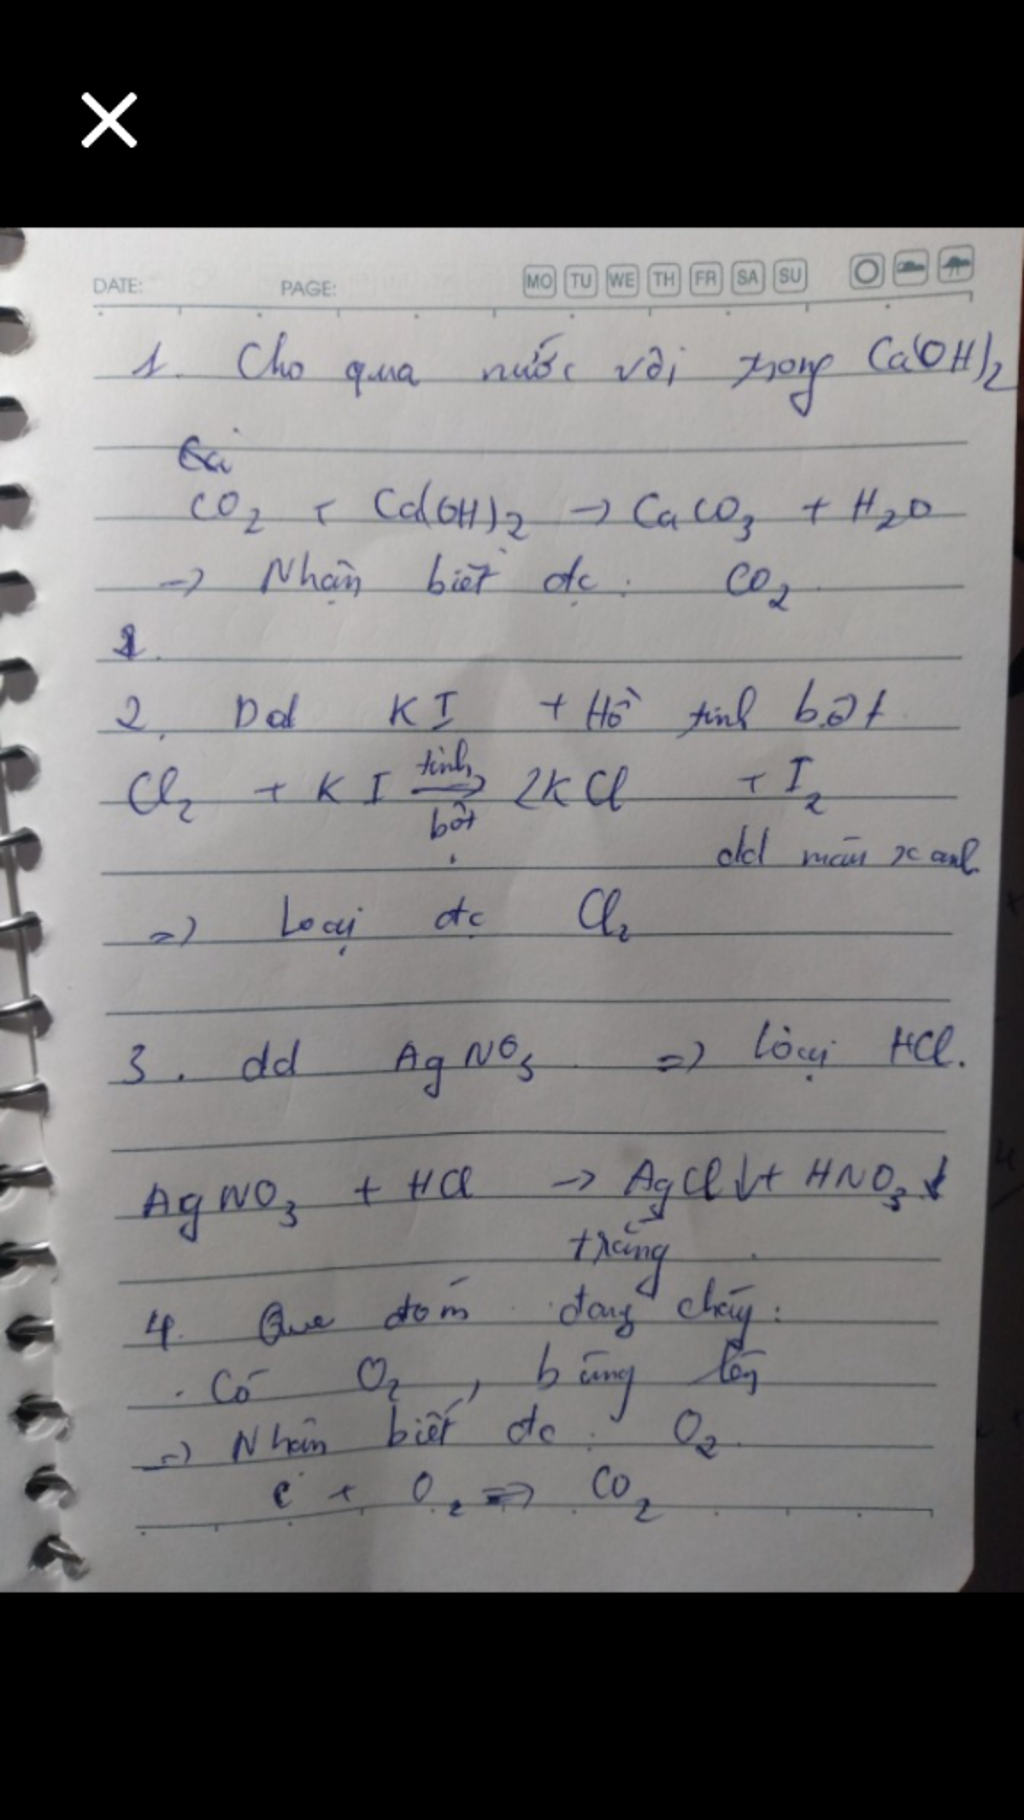 DATE: PAGE: MO TU WE TH FR SA SU
1. Cho qua nước vôi trong Ca(OH)2
CO2 + Ca(OH)2 → CaCO3 + H2O
→ Nhận biết đc: CO2
2. Dd KI + Hồ tinh bột
Cl2 + KI tinh bột → 2KCl + I2
dd màu xanh
=> Loại đc Cl2
3. dd AgNO3 => loại HCl.
AgNO3 + HCl → AgCl↓ + HNO3
trắng
4. Que đóm đang cháy:
. Có O2, bùng lên
=> Nhận biết đc: O2
C + O2 => CO2